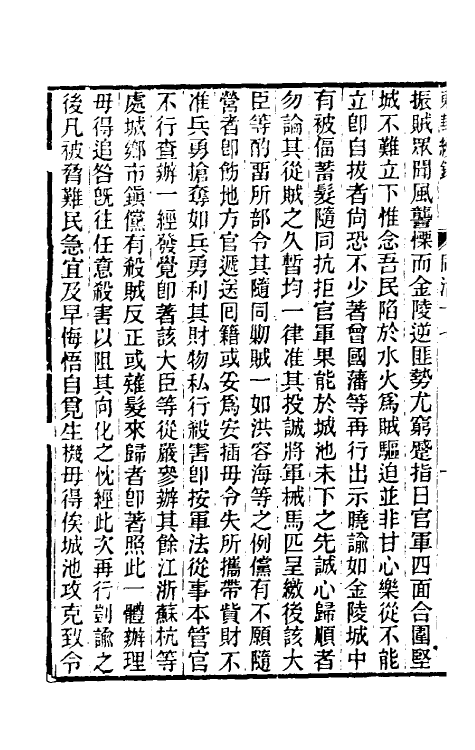 振賊眾聞風讋慄而金陵逆匪勢尤窮蹙指日官軍四面合圍堅
城不難立下惟念吾民陷於水火為賊驅迫並非甘心樂從不能
立卽自拔者尙恐不少著曾國藩等再行出示曉諭如金陵城中
有被偪蓄髮隨同抗拒官軍果能於城池未下之先誠心歸順者
勿論其從賊之久暫均一律准其投誠將軍械馬匹呈繳後該大
臣等酌畱所部令其隨同勦賊一如洪容海等之例儻有不願隨
營者卽飭地方官遞送回籍或妥為安插毋令失所攜帶貲財不
准兵勇搶奪如兵勇利其財物私行殺害卽按軍法從事本管官
不行查辦一經發覺卽著該大臣等從嚴參辦其餘江浙蘇杭等
處城鄉市鎮儻有殺賊反正或薙髮來歸者卽著照此一體辦理
毋得追咎旣往任意殺害以阻其向化之忱經此次再行剴諭之
後凡被脅難民急宜及早悔悟自覓生機毋得俟城池攻克致令